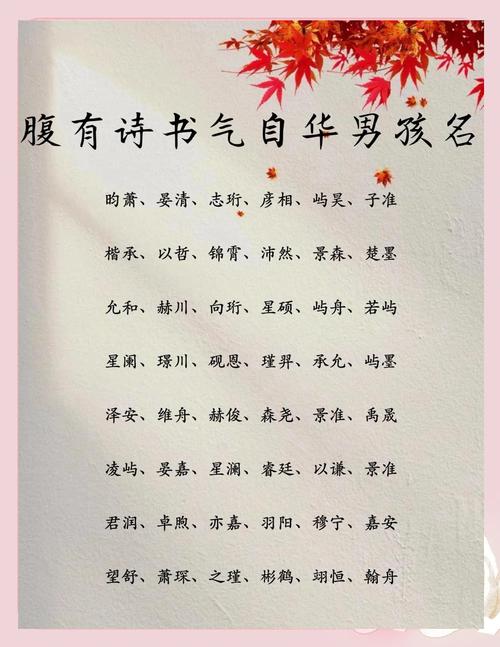 腹有诗书气自华男孩名
昀萧、晏清、志珩、彦相、屿昊、子准
楷承、以哲、锦霄、沛然、景森、楚墨
允和、赫川、向珩、星硕、屿舟、若屿
星阑、璟川、砚恩、瑾羿、承允、屿墨
泽安、维舟、赫俊、森尧、景准、禹晟
凌屿、晏嘉、星澜、睿廷、以谦、景准
君润、卓煦、亦嘉、羽阳、穆宁、嘉安
望舒、萧琛、之瑾、彬鹤、翊恒、翰舟